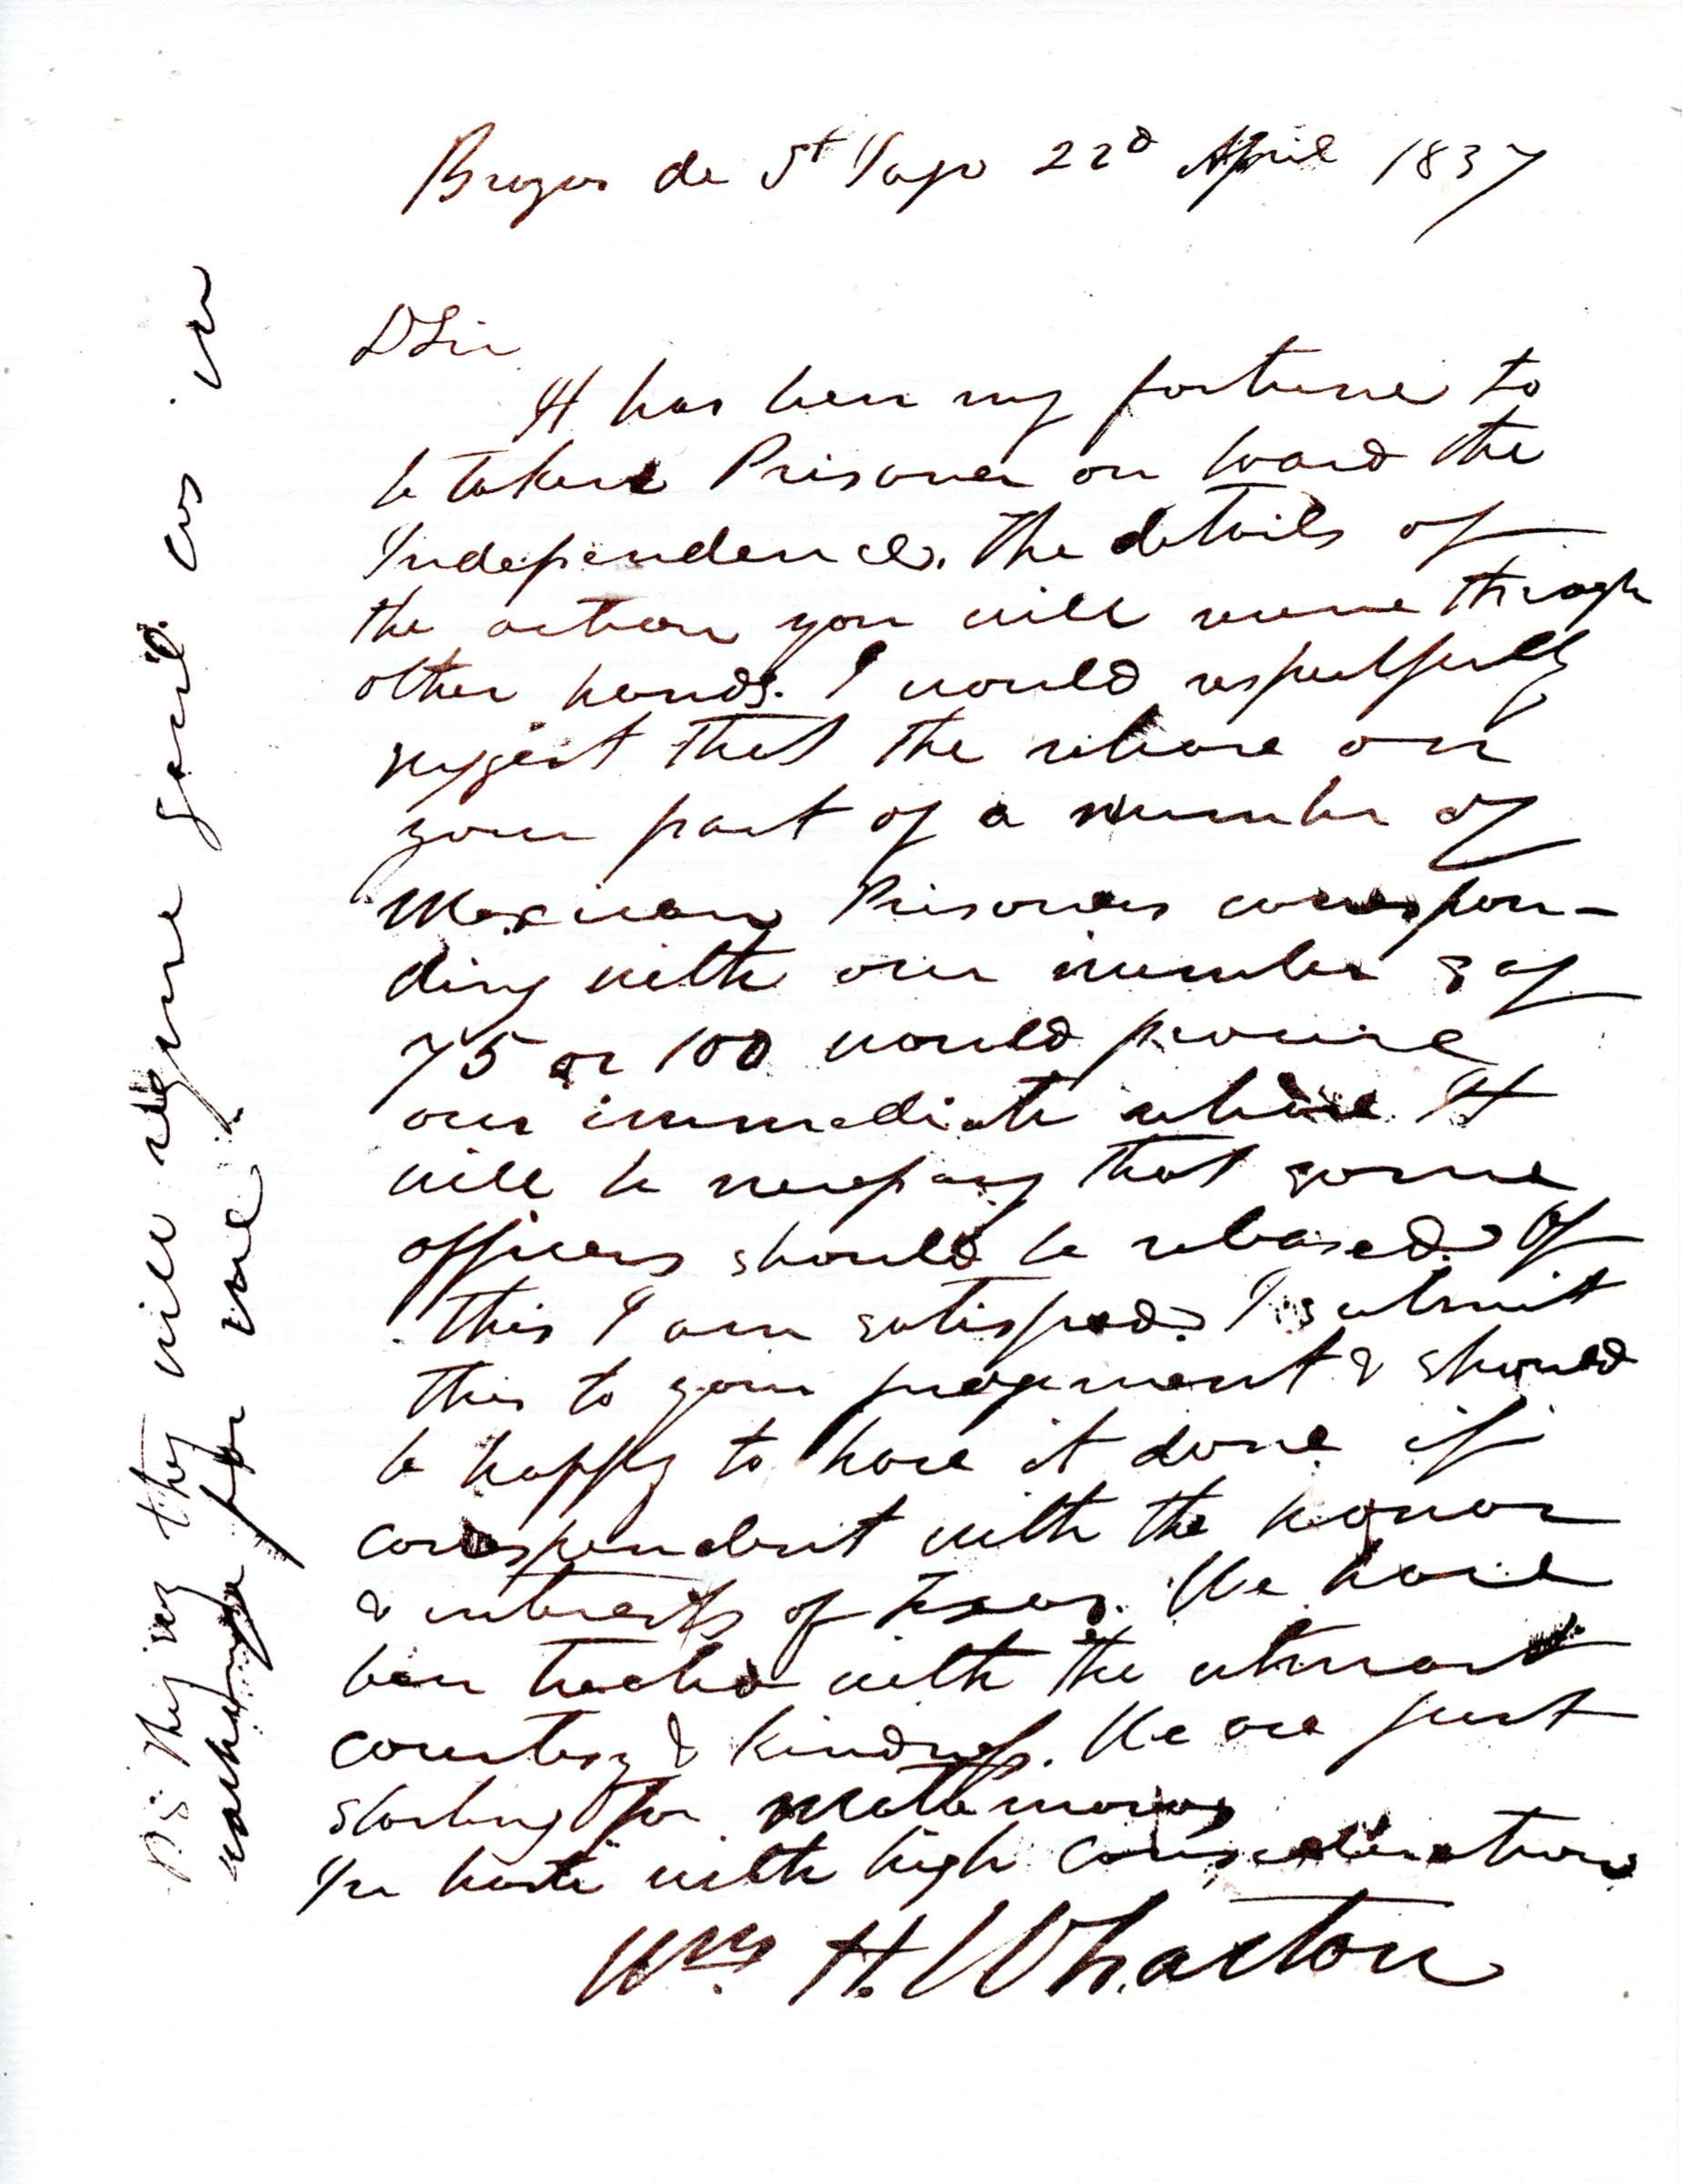 Brazos de St Yago 22d April 1837
D Sir
It has been my fortune to
be taken Prisoner on board the
Independence. The details of
the action you will receive through
other hands. I would respectfully
suggest that the release on
your part of a number of
Mexican Prisoners correspon-
ding with our number say
75 or 100 would procure
our immediate release It
will be necessary that some
officers should be released. Of
this I am satisfied. I submit
this to your judgment & should
be happy to have it done if
correspondent with the honor
& interests of Texas. We have
been treated with the utmost
courtesy & kindness. We are just
starting for Matamoros
In haste with high consideration
Wm. H. Wharton
they will require
exchange for me